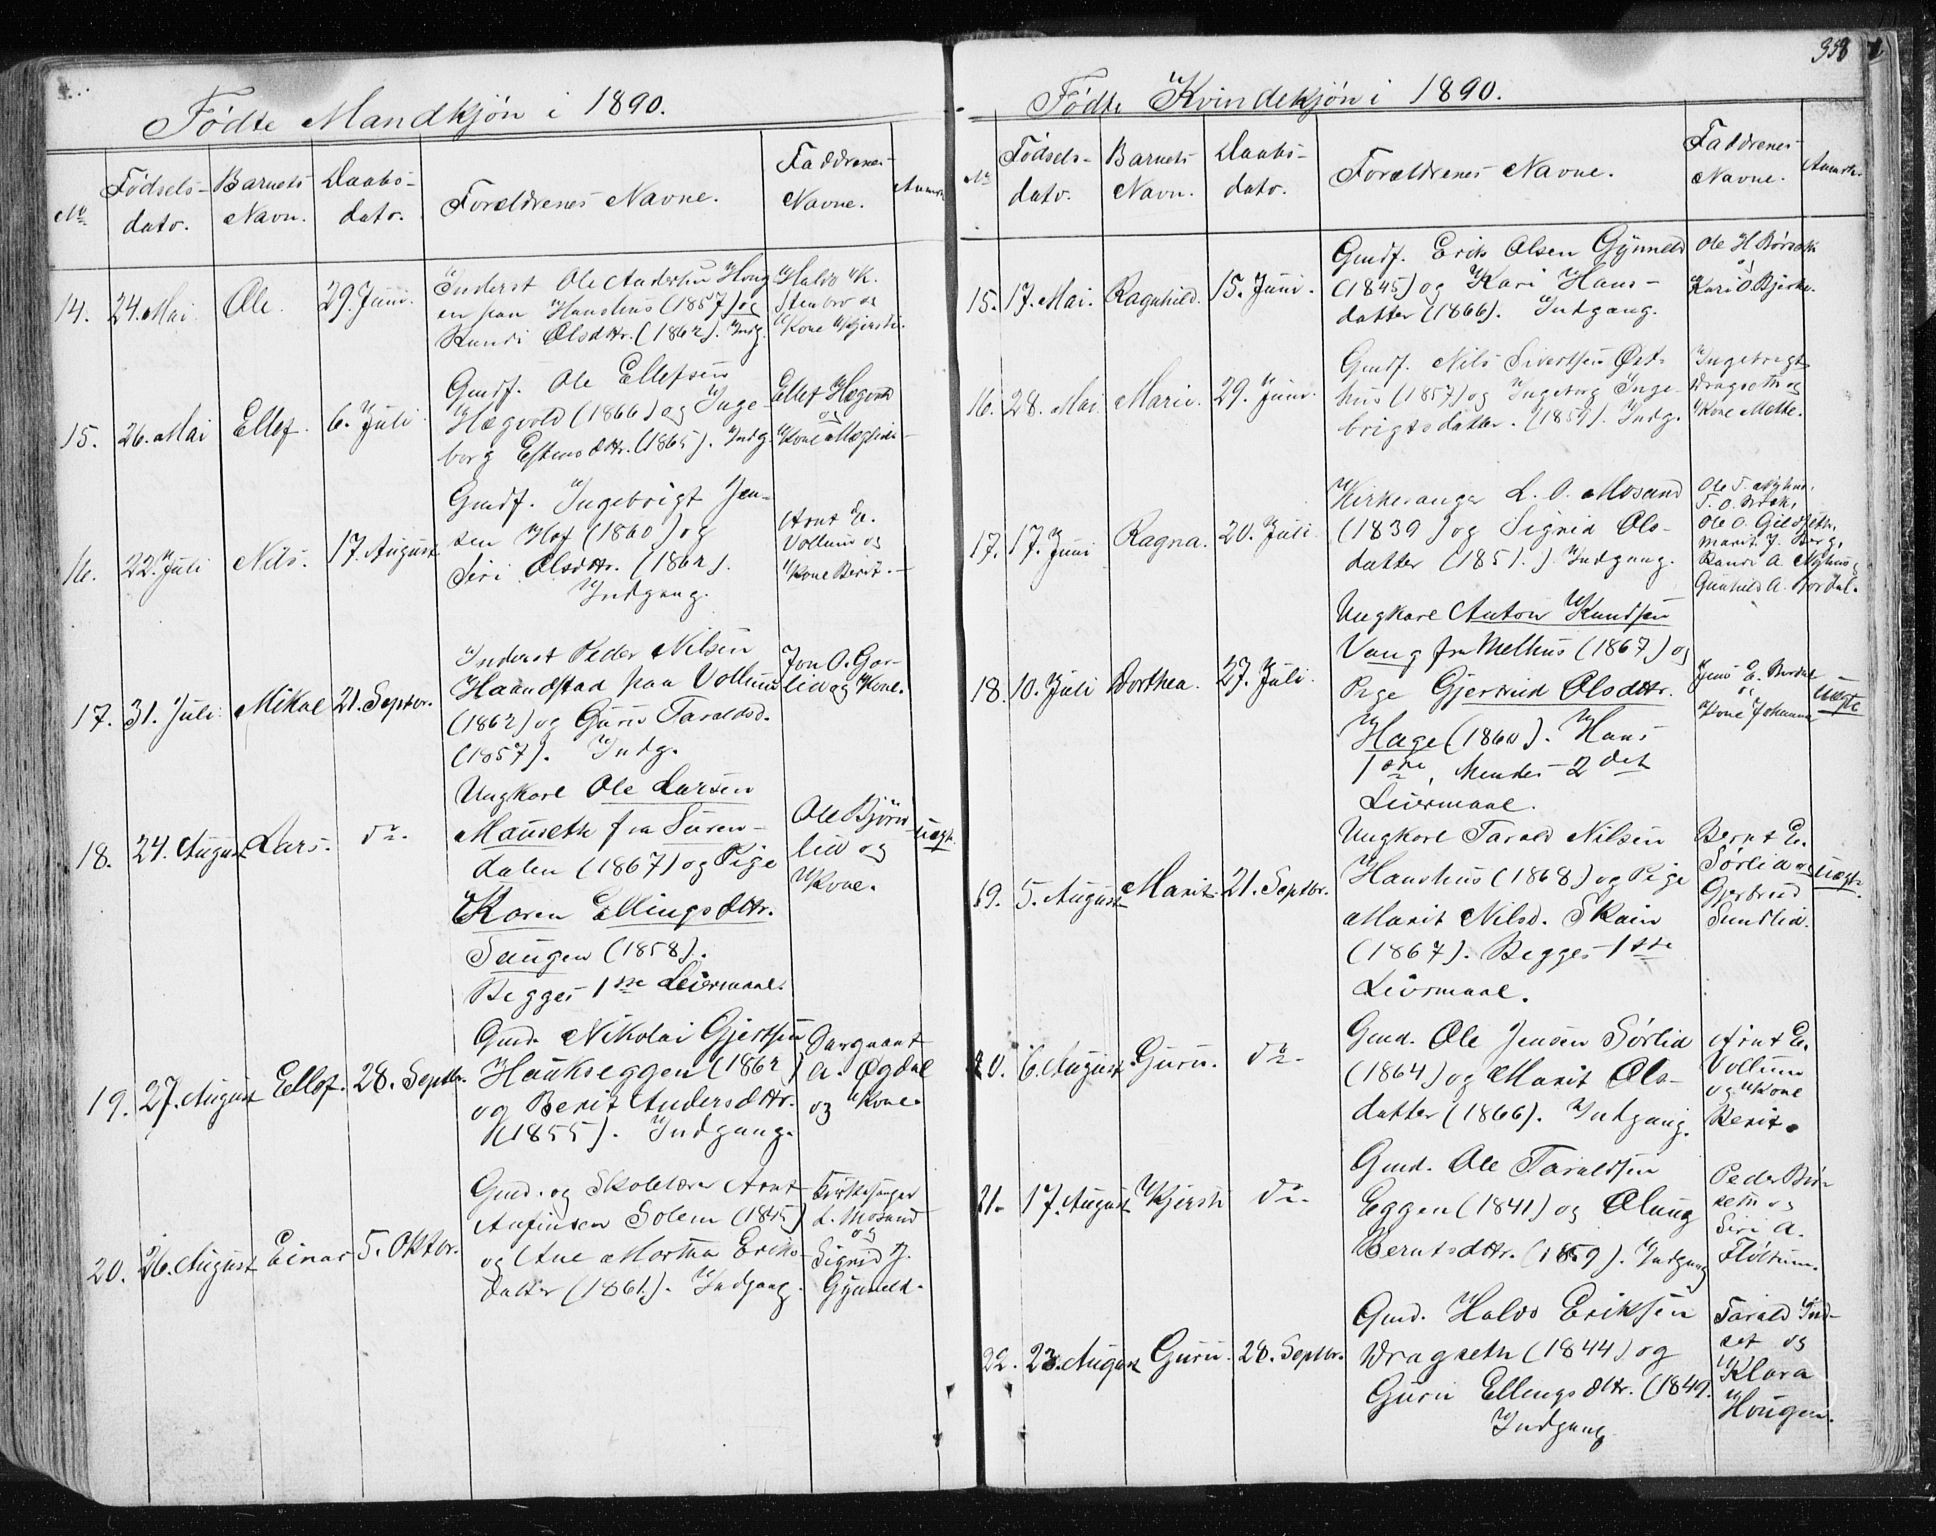 Fødte Mandkjön i 1890.
No
Fødsels-
dato.
Barnets
Navn.
Daabs-
dato.
Forældrenes Navne.
Faddrenes
Navne.
Anmrk.
14.
24. Mai
Ole.
29. Juni.
Inderst Ole Andersen Houg
en paa Haushus (1857) og
Randi Olsdttr. (1862). Indg.
Halvo K.
Stenbro og
Kone Kjersti.
15.
26. Mai
Ellef.
6. Juli.
Gmdf. Ole Ellefsen
Hægvold (1866) og Inge-
borg Estensdttr. (1865). Indg.
Ellef Hægvold
og
Kone Magnhild
16.
22. Juli
Nils.
17. August
Gmdf. Ingebrigt Jen-
sen Hof (1860) og
Siri Olsdttr. (1862).
Indgang.
Arnt E.
Vollum og
Kone Berit.
17.
31. Juli
Mikal
21. Septbr.
Inderst Peder Nilsen
Haandstad paa Vollum
(1862) og Guru Taraldsd.
(1857). Indg.
Jon O. Gor-
lid og Kone.
18.
24. August
Lars.
do.
Ungkarl Ole Larsen
Mauseth fra Suren-
dalen (1867) og Pige
Karen Ellingsdttr.
Saugen (1858).
Begges 1ste Leiermaal.
Ole Bjørn-
lid og
Kone.
uægt.
19.
27. August
Ellef.
28. Septbr.
Gmd. Nikolai Gjertsen
Haukseggen (1862)
og Berit Andersdttr.
(1855). Indgang.
Sargeant
A. Øgdal
og Kone.
20.
26. August
Einar
5. Oktbr.
Gmd. og Skolelærer Arnt
Anfinsen Solem (1845)
og Ane Martha Eriks-
datter (1861). Indgang.
Kirkesanger
L. Mosand
og
Sigrid J.
Gynneld.
358
Fødte Kvindekjön i 1890.
No
Fødsels-
dato.
Barnets
Navn.
Daabs-
dato.
Forældrenes Navne.
Faddrenes
Navne.
Anmrk.
15.
17. Mai.
Ragnhild.
15. Juni.
Gmdf. Erik Olsen Gynneld
(1845) og Kari Hans-
datter (1866). Indgang.
Ole H. Børseth
og
Kari O. Bjerke.
16.
28. Mai
Marie.
29. Juni.
Gmdf. Nils Sivertsen Øst-
hus (1857) og Ingeborg Inge-
brigtsdatter. (1859). Indg.
Ingebrigt
Dragseth og
Kone Mette.
17.
17. Juni
Ragna.
20. Juli.
Kirkesanger L. O. Mosand
(1839) og Sigrid Ols-
datter (1851.). Indgang.
Ole T. Myhus,
T. O. Krok,
Ole O. Gildseth,
Marit J. Berg,
Randi A. Myhus og
Gunhild A. Bordal.
18.
10. Juli
Dorthea.
27. Juli.
Ungkarl Anton Knudsen
Vang fra Melhus (1867) og
Pige Gjertrud Olsdttr.
Hage (1860). Hans
1ste, Hendes 2det
Leiermaal.
Jens E. Bordal
og
Kone Johanna
uægte
19.
5. August
Marit
21. Septbr.
Ungkarl Tarald Nilsen
Haushus (1868) og Pige
Marit Nilsd. Skain
(1867). Begges 1ste
Leiermaal.
Bernt E.
Sørlid og
Gjertrud
Sundlid.
uægt.
20.
6. August
Guru.
do.
Gmd. Ole Jensen Sørlid
(1864) og Marit Ols-
datter (1866). Indgang.
Arnt E.
Vollum
og Kone
Berit.
21.
17. August
Kjersti
do.
Gmd. Ole Taraldsen
Eggen (1841) og Olaug
Berntsdttr. (1859). Indgang
Peder Bør-
seth og
Siri A.
Fløttum.
22.
23. August
Guru.
28. Septbr.
Gmd. Halvo Eriksen
Dragseth (1844) og
Guru Ellingsdttr. (1849.
Indgang
Tarald Ind-
set og
Klara
Hougen.